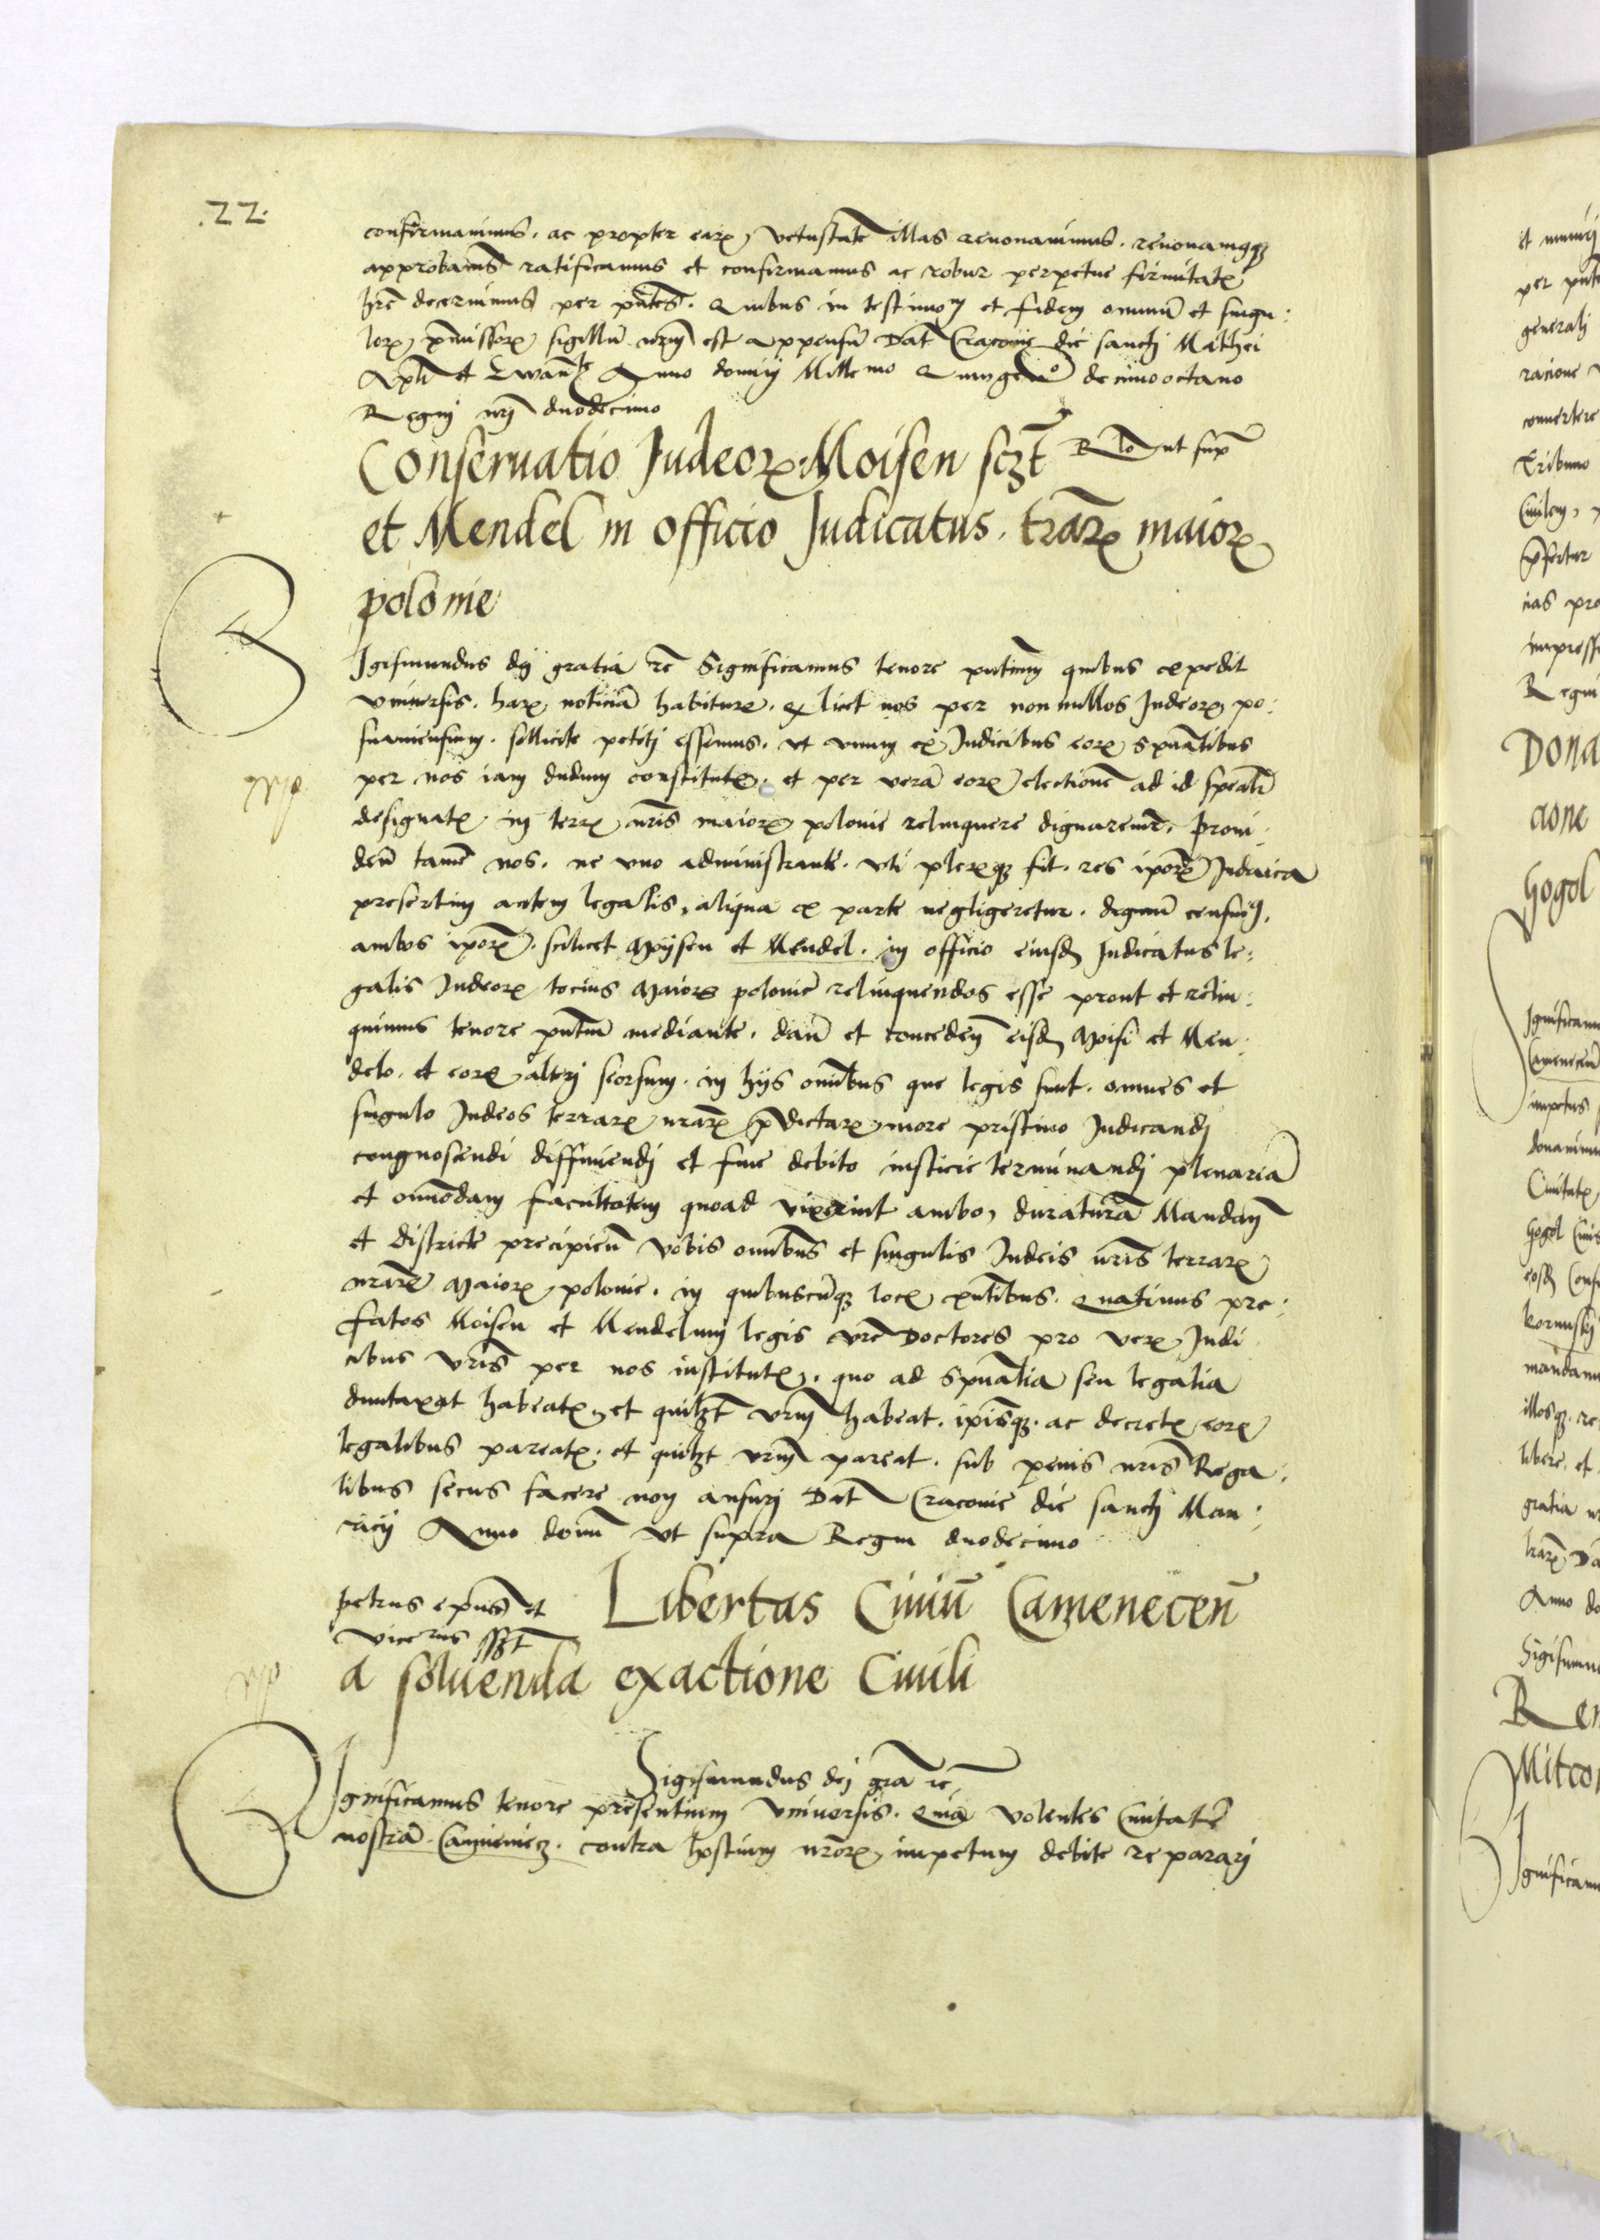 .22.
confirmavimus. ac propter earꝝ vetustatē illas renovavimus. renovamqꝫ
approbam9 ratificamus et confirmamus ac robur perpetue firmitatꝭ
hr̄e decernimus per pn̄tes. Quibus in testimo et fidem omniū et singu:
lorꝝ p̄missorꝝ sigillū nr̄m est appensū Dat̄ Cracovie die sancti Mathei
Apl̄i et Ewan̄te Anno domini Millemo Quingēo decimooctavo
Regni nr̄i duodecimo
Conservatio Judeorꝝ Moisen sczt̄ Rlo ut supͣ
et Mendel in officio Judicatus. trār̄ꝝ maiorꝝ
polonie
Igismundus dei gratia rc̄ Significamus tenore pn̄tium quibus expedit
universis. harꝝ noticiā habiturꝭ. Qz licet nos per nonnullos Judeorꝝ po:
snaniensium. sollicite petiti essemus. ut unum ex Judicibus eorꝝ spūalibus
per nos iam dudum constitutꝭ. et per verā eorꝝ electionē ad id spealr̄
designatꝭ in terrꝭ nr̄is maiorꝭ polonie relinquere dignaremr̄. Provi:
den̄ tamē nos. ne uno administrante. uti plerꝝqꝫ fit. res ipōrꝝ Judaica
presertim autem legalis, aliqua ex parte negligeretur. dignū censui9.
ambos ipōrꝝ. scilicet Moijsen et Mendel. in officio eiusdꝫ Judicatus le:
galis Judeorꝝ tocius Maioris polonie relinquendos esse prout et relin:
quimus tenore pn̄tium mediante. dan̄ et conceden̄ eisdꝫ Moisi et Men:
delo. et eorꝝ alteri seorsum. in hijs om̄ibus que legis sunt. omnes et
singulo Judeos terrarꝝ nr̄arꝝ p̄dictarꝝ more pristino Judicandi
congnoscendi diffiniendi et fine debito iusticie terminandi plenariā
et om̄odam facultatem quoad vixerint ambo, duraturā Mandan̄
et districte precipien̄ vobis om̄ibus et singulis Judeis nr̄is terrarꝝ
nr̄arꝝ Maiorꝭ polonie. in quibuscūqꝫ locꝭ exn̄tibus. Quatinus pre:
fatos Moisen et Mendelum legis vr̄e Doctores pro verꝭ Judi
cibus vr̄is per nos institutꝭ. quo ad spūalia seu legalia
duntaxat habeatꝭ et quilꝫt vr̄m habeat. ipīsqꝫ. ac decretꝭ eorꝝ
legalibus pareatꝭ. et quilꝫt vr̄m pareat. sub penis nr̄is Rega:
libus secus facere non ausuri Dat̄ Cracovie die sancti Mau:
ricij Anno domī ut supra Regni duodecimo
petrus epūs et Libertas Civiū Camenecen̄
vicerius sszt̄
a solvenda exactione Civili
Sigismundus dei gra rc̄
Ignificamus tenore presentium Universis. Quia volentes Civitatē
nostrā Camieniecz. contra hostium nr̄orꝝ impetum debite reparari